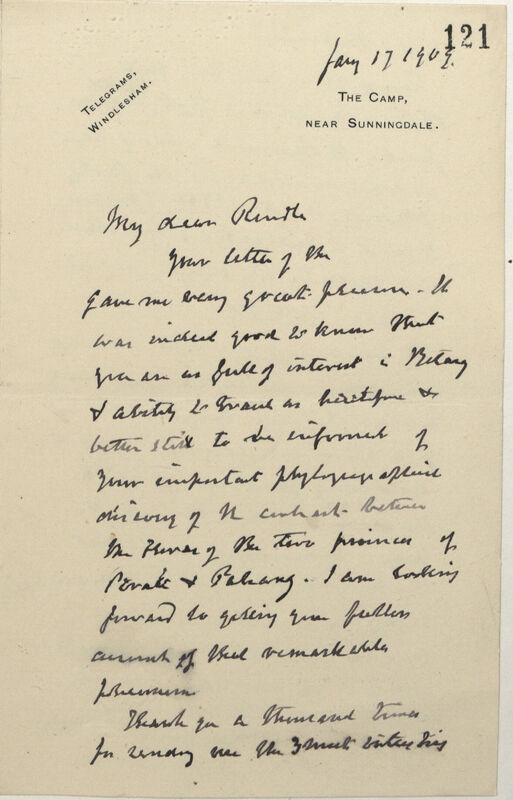 121
Jany 17 1909.
TELEGRAMS,
WINDLESHAM.
THE CAMP,
NEAR SUNNINGDALE.
My dear Ridley
Your letter of the
gave me very great pleasure. It
was indeed good to know that
you are as full of interest in Botany
& ability to travel as heretofore &
better still to be informed of
your important phytogeographical
discovery of the contrast between
the Floras of the two provinces of
Perak & Pahang. I am looking
forward to getting your fuller
account of that remarkable
phenomenon
Thank you a thousand times
for sending me the 3 most interesting